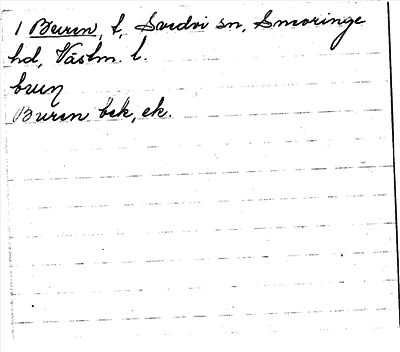 1 Buren, t, Svedvi sn, Snevringe
hd, Västm. l.
buŋ
Buren bek, ek.